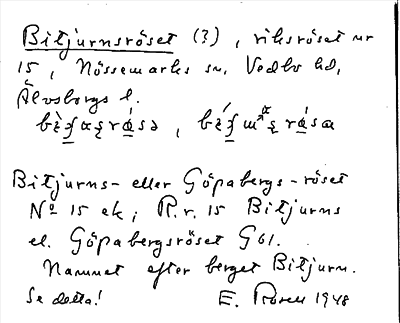 Bitjurnsröset (?), riksröset nr
15, Nössemarks sn, Vedbo hd,
Älvsborgs l.
Bitjurns- eller Göpabergs-röset
No 15 ek; R.r. 15 Bitjurns
el. Göpabergsröset G61.
Namnet efter berget Bitjurn.
Se detta! E. Rosell 1948